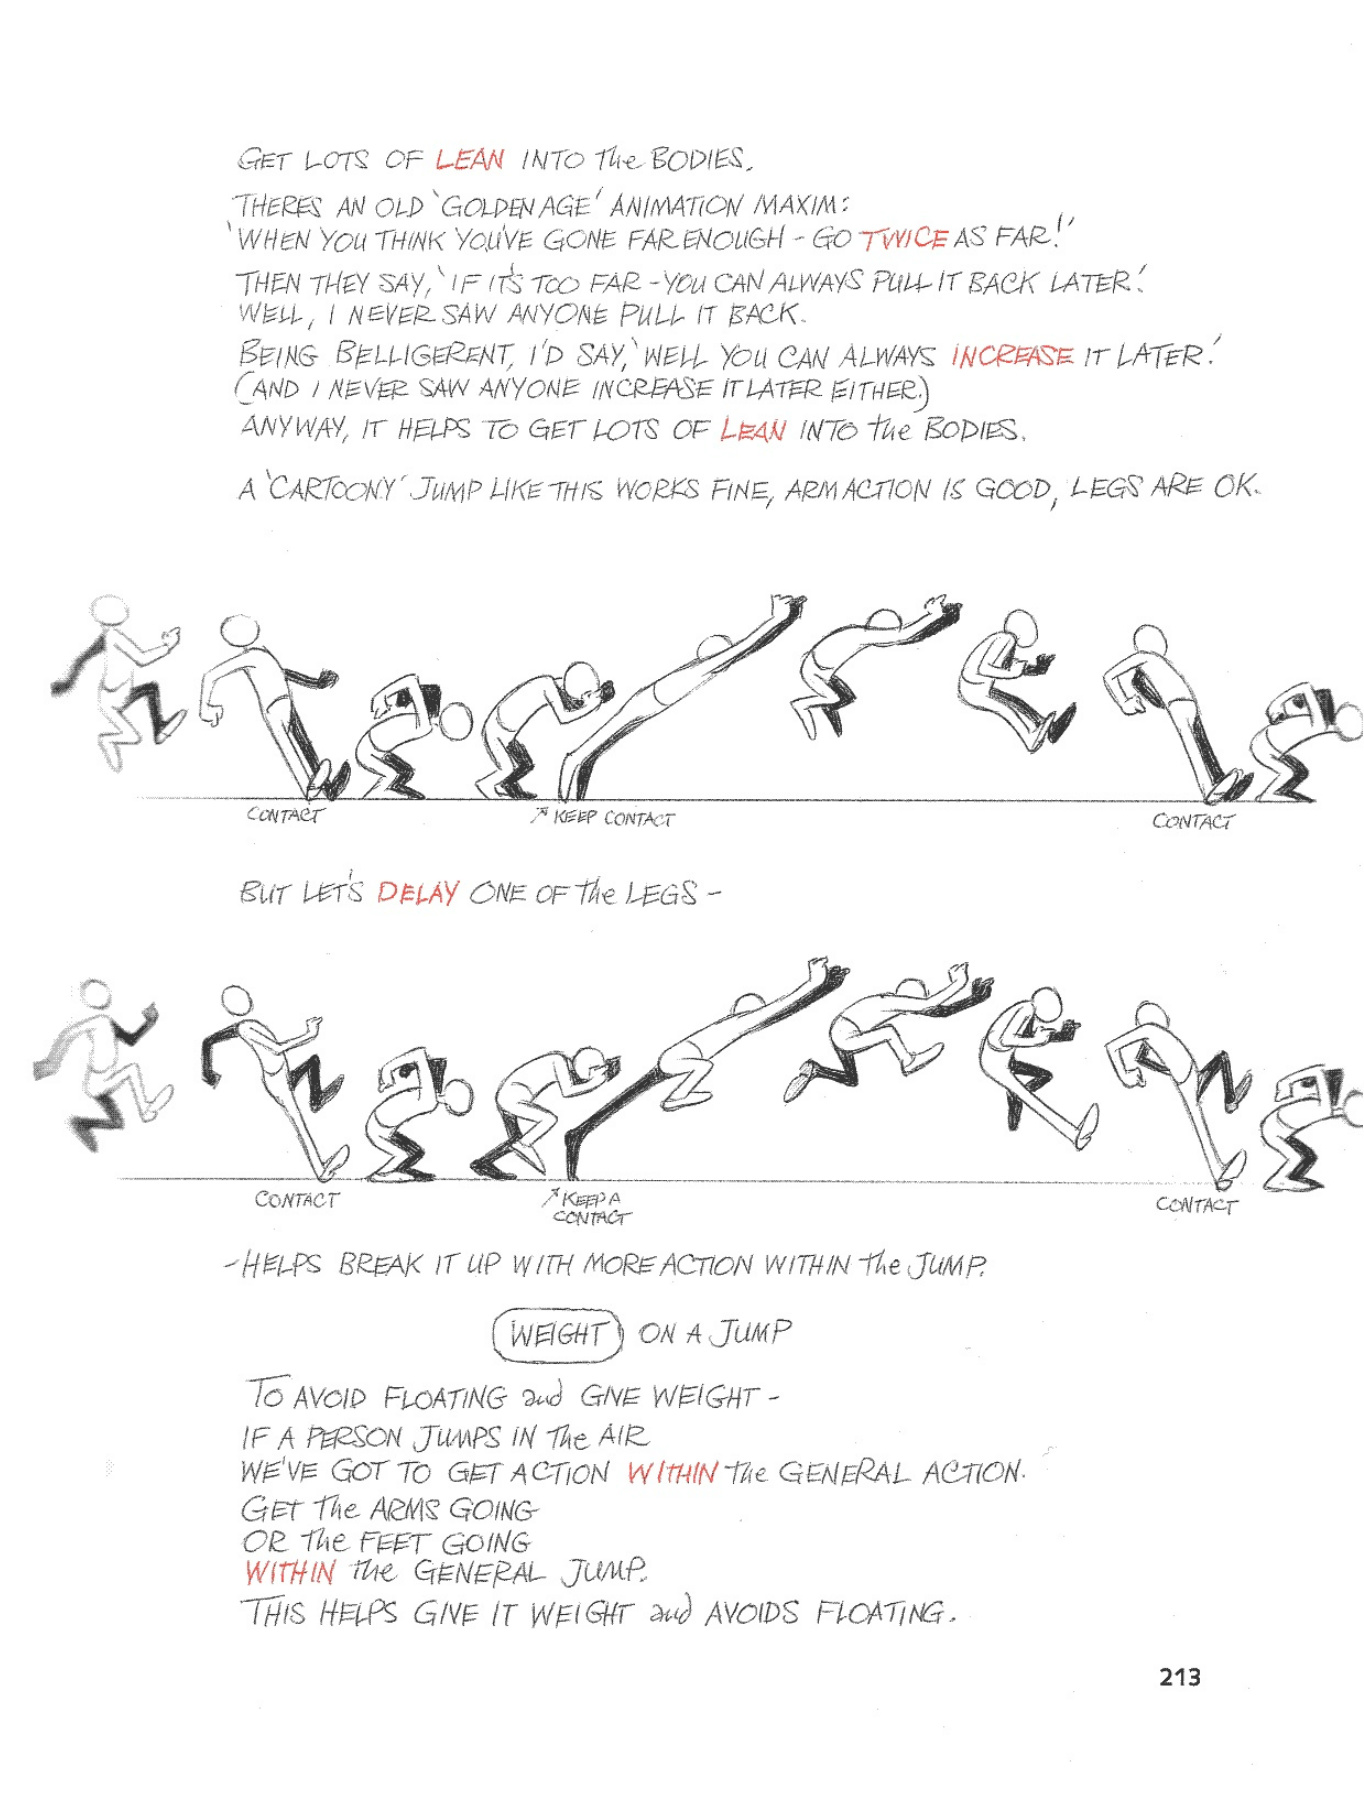 GET LOTS OF LEAN INTO the BODIES.
THERES AN OLD 'GOLDEN AGE' ANIMATION MAXIM:
'WHEN YOU THINK YOU'VE GONE FAR ENOUGH - GO TWICE AS FAR!'
THEN THEY SAY, 'IF IT'S TOO FAR - YOU CAN ALWAYS PULL IT BACK LATER.'
WELL, I NEVER SAW ANYONE PULL IT BACK.
BEING BELLIGERENT, I'D SAY, 'WELL YOU CAN ALWAYS INCREASE IT LATER.'
(AND I NEVER SAW ANYONE INCREASE IT LATER EITHER.)
ANYWAY, IT HELPS TO GET LOTS OF LEAN INTO the BODIES.
A 'CARTOONY' JUMP LIKE THIS WORKS FINE, ARM ACTION IS GOOD, LEGS ARE OK.
CONTACT
KEEP CONTACT
CONTACT
BUT LET'S DELAY ONE OF the LEGS -
CONTACT
KEEP A
CONTACT
CONTACT
- HELPS BREAK IT UP WITH MORE ACTION WITHIN the JUMP.
WEIGHT ON A JUMP
TO AVOID FLOATING and GIVE WEIGHT -
IF A PERSON JUMPS IN the AIR
WE'VE GOT TO GET ACTION WITHIN the GENERAL ACTION.
GET the ARMS GOING
OR the FEET GOING
WITHIN the GENERAL JUMP.
THIS HELPS GIVE IT WEIGHT and AVOIDS FLOATING.
213